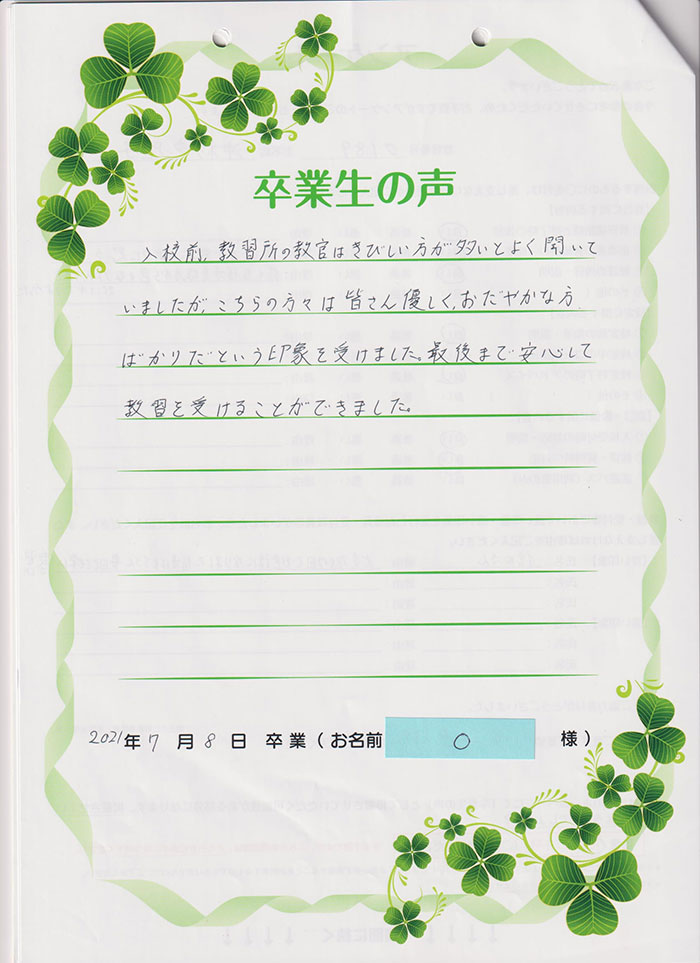 卒業生の声
入校前、教習所の教官はきびしい方が多いとよく聞いて
いましたが、こちらの方々は皆さん優しく、おだやかな方
ばかりだという印象を受けました。最後まで安心して
教習を受けることができました。
2021年7月8日 卒業(お名前 O 様)